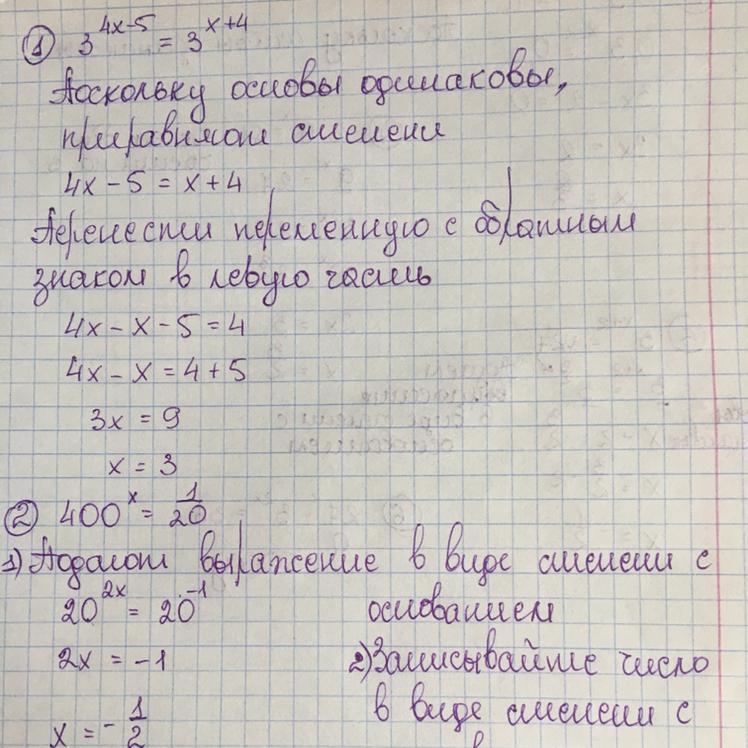 ① 3^{4x-5} = 3^{x+4}
Поскольку основы одинаковы,
приравнивают степени
4x - 5 = x + 4
Перенести переменную с обратным
знаком в левую часть
4x - x - 5 = 4
4x - x = 4 + 5
3x = 9
x = 3
② 400^x = 1/20
1) Подают выражение в виде степени с
20^{2x} = 20^{-1} основанием
2x = -1 2) Записывайте число
x = - 1/2 в виде степени с